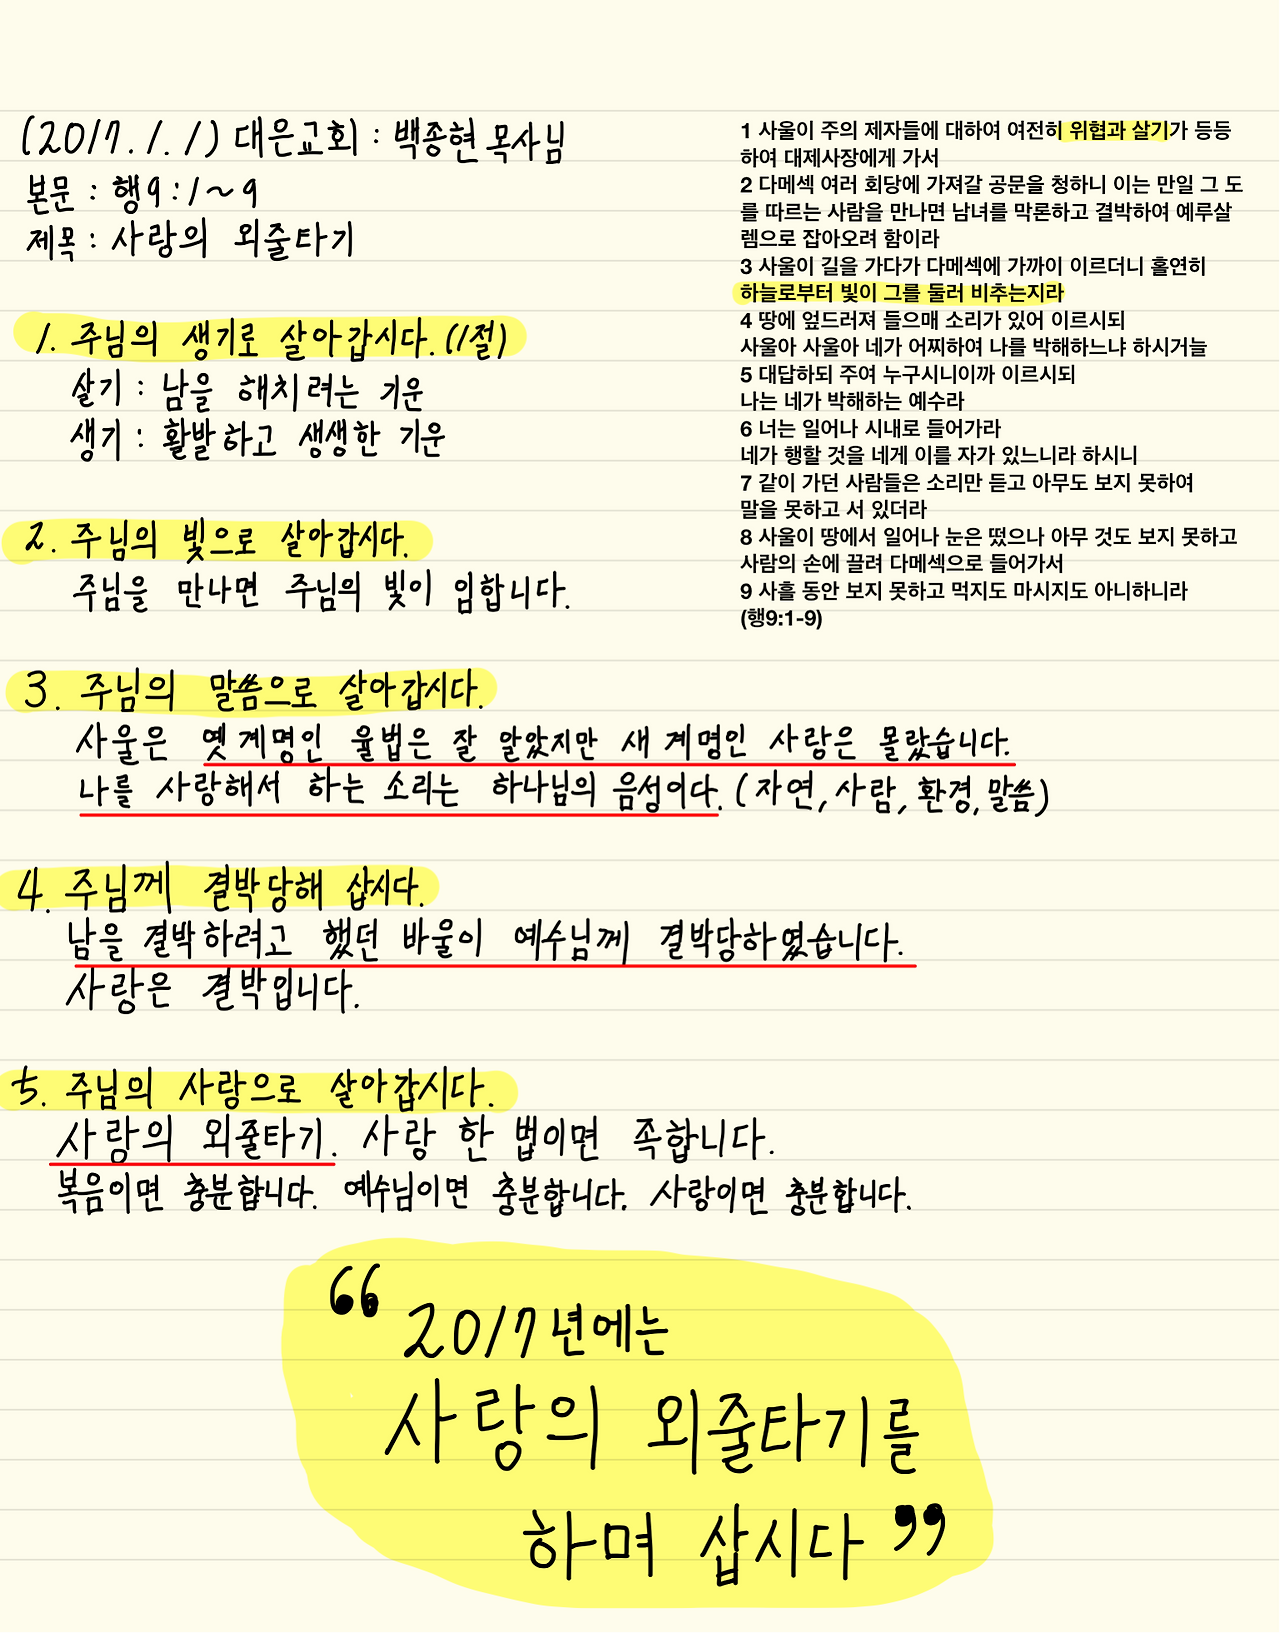 (2017.1.1) 대은교회 : 백종현 목사님
본문 : 행9:1~9
제목 : 사랑의 외줄타기
1. 주님의 생기로 살아갑시다.(1절)
살기 : 남을 해치려는 기운
생기 : 활발하고 생생한 기운
2. 주님의 빛으로 살아갑시다.
주님을 만나면 주님의 빛이 임합니다.
1 사울이 주의 제자들에 대하여 여전히 위협과 살기가 등등
하여 대제사장에게 가서
2 다메섹 여러 회당에 가져갈 공문을 청하니 이는 만일 그 도
를 따르는 사람을 만나면 남녀를 막론하고 결박하여 예루살
렘으로 잡아오려 함이라
3 사울이 길을 가다가 다메섹에 가까이 이르더니 홀연히
하늘로부터 빛이 그를 둘러 비추는지라
4 땅에 엎드러져 들으매 소리가 있어 이르시되
사울아 사울아 네가 어찌하여 나를 박해하느냐 하시거늘
5 대답하되 주여 누구시니이까 이르시되
나는 네가 박해하는 예수라
6 너는 일어나 시내로 들어가라
네가 행할 것을 네게 이를 자가 있느니라 하시니
7 같이 가던 사람들은 소리만 듣고 아무도 보지 못하여
말을 못하고 서 있더라
8 사울이 땅에서 일어나 눈은 떴으나 아무 것도 보지 못하고
사람의 손에 끌려 다메섹으로 들어가서
9 사흘 동안 보지 못하고 먹지도 마시지도 아니하니라
(행9:1-9)
3. 주님의 말씀으로 살아갑시다.
사울은 옛 계명인 율법은 잘 알았지만 새 계명인 사랑은 몰랐습니다.
나를 사랑해서 하는 소리는 하나님의 음성이다. (자연, 사람, 환경, 말씀)
4. 주님께 결박당해 삽시다.
남을 결박하려고 했던 바울이 예수님께 결박당하였습니다.
사랑은 결박입니다.
5. 주님의 사랑으로 살아갑시다.
사랑의 외줄타기. 사랑 한 법이면 족합니다.
복음이면 충분합니다. 예수님이면 충분합니다. 사랑이면 충분합니다.
“2017년에는
사랑의 외줄타기를
하며 삽시다”